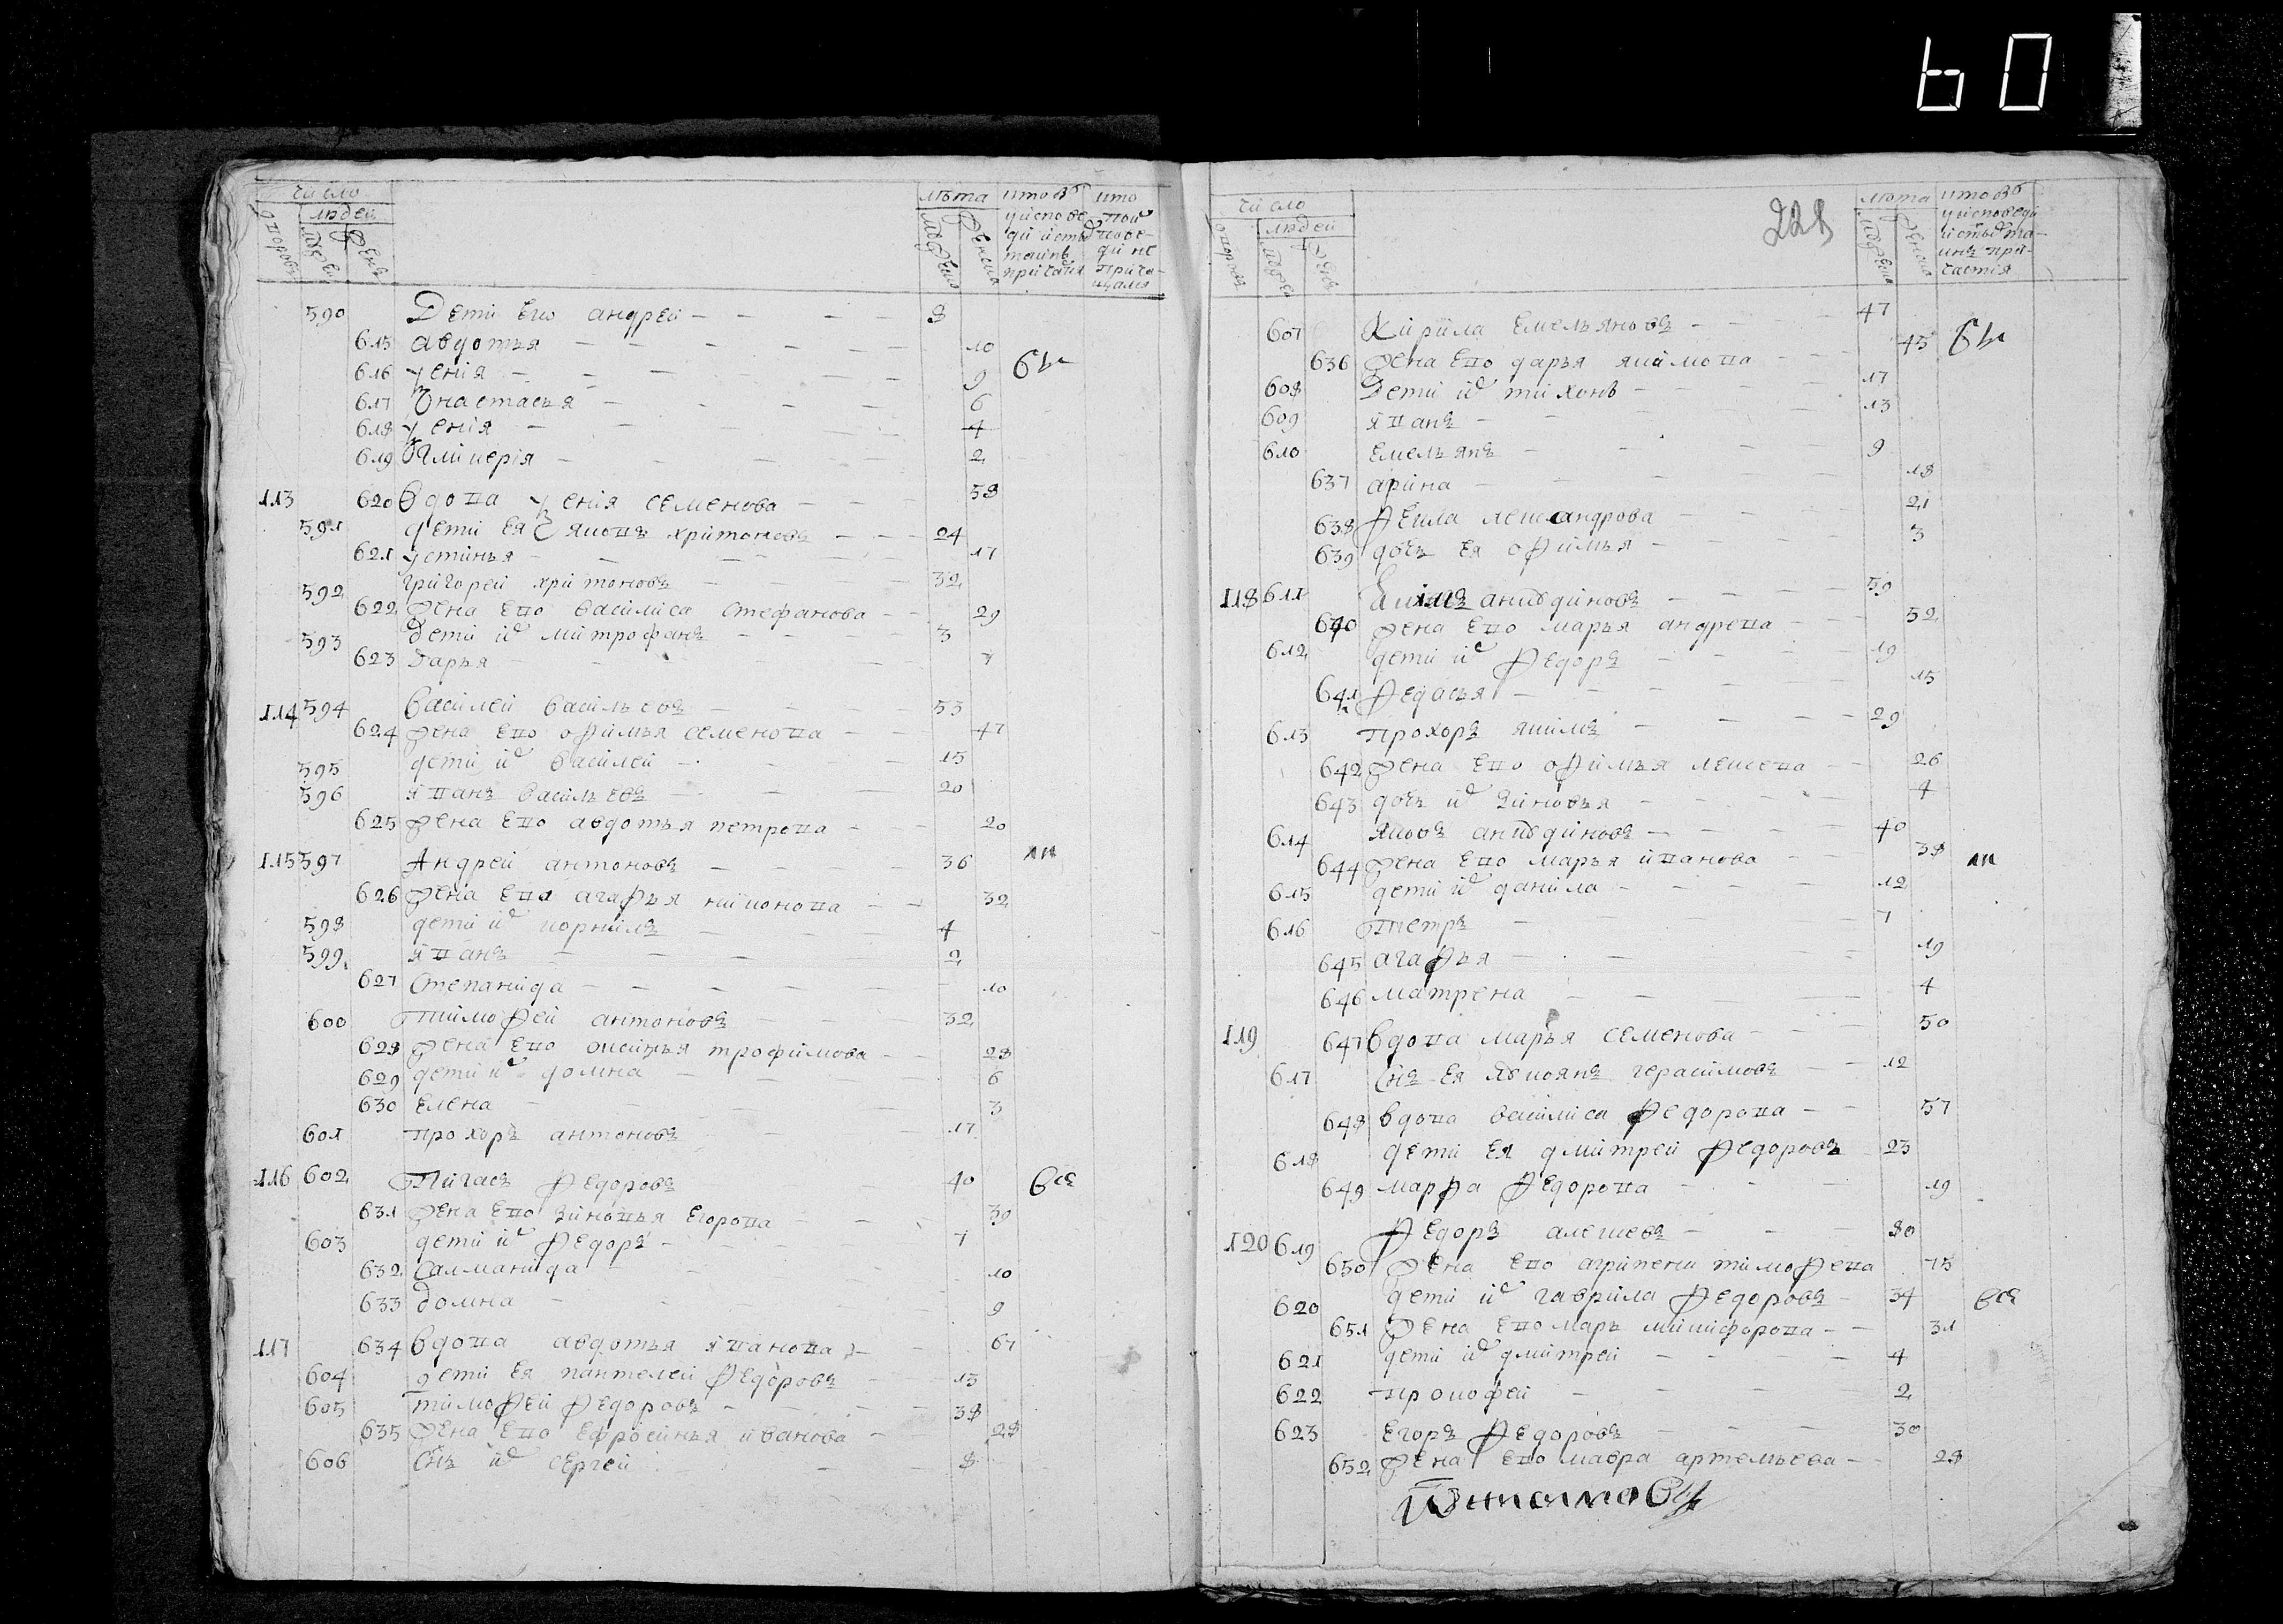 60
число
людей
дворовъ
мужеска
женска
лѣта
мужеска
женска
кто въ
у исповеди и стыхъ
таинъ
причастия
кто
исповеди не
прича-
щался
590 Дети его андрей 8
615 авдотья 10
616 Ѯенія 9
бы
617 настасья 6
618 Ѯенія 4
619 Гликерія 2
113 620 Вдова Ѯенія семенова 58
591 дети ея яковъ хритоновъ 24
621 устинья 17
592 григорей хритоновъ 32
622 жена его василиса стефанова 29
593 дети ихъ митрофанъ 3
623 дарья 7
114 594 василей васильевъ 53
624 жена его офимья семенова 47
595 дети ихъ василей 15
596 іванъ васильевъ 20
625 жена его авдотья петрова 20
115 597 Андрей антоновъ 36
626 жена его агафья никонова 32
598 дети ихъ корнилъ 4
599 іванъ 2
627 степанида 10
600 тимофей антоновъ 32
628 жена его оксинья трофимова 28
629 дети ихъ домна 6
630 елена 3
601 прохоръ антоновъ 17
116 602 Пигасъ Федоровъ 40 все
631 жена его зиновья егорова 39
603 дети ихъ Федоръ 7
632 саламанида 10
633 домна 9
117 634 вдова авдотья іванова 67
604 дети ея пантелей Федоровъ 13
605 тимофей Федоровъ 38
635 жена его ефросинья иванова 28
606 снъ ихъ сергей 8
число
людей
дворовъ
мужеска
женска
лѣта
мужеска
женска
кто въ
у исповеди
и стыхъ та-
инъ при-
частія
607 Кирила емельяновъ 47
636 жена его дарья якимова 45 бы
608 Дети ихъ тихонъ 17
609 іванъ 13
610 емельянъ 9
637 арина 18
638 Фекла лександрова 21
639 дочь ея офимья 3
118 611 анкудиновъ 59
640 жена его марья андрева 52
612 дети ихъ Федоръ 19
641 Федосья 15
613 прохоръ якимъ 29
642 жена его офимья лексева 26
643 дочь ихъ зиновья 4
614 яковъ анкудиновъ 40
644 жена его марья иванова 38
615 дети ихъ данила 12
616 петръ 7
645 агафья 19
646 матрена 4
119 647 вдова марья семенова 50
617 снъ ея герасимовъ 12
648 вдова василиса Федорова 57
618 дети ея дмитрей Федоровъ 23
649 марфа Федорова 19
120 619 Федоръ алексевъ 80
650 жена его агрипени тимофева 75
620 дети ихъ гаврила Федоровъ 34 все
651 жена его марь микифорова 31
621 дети ихъ дмитрей 4
622 прокофей 2
623 егоръ Федоровъ 30
652 жена его мавра артемьева 28